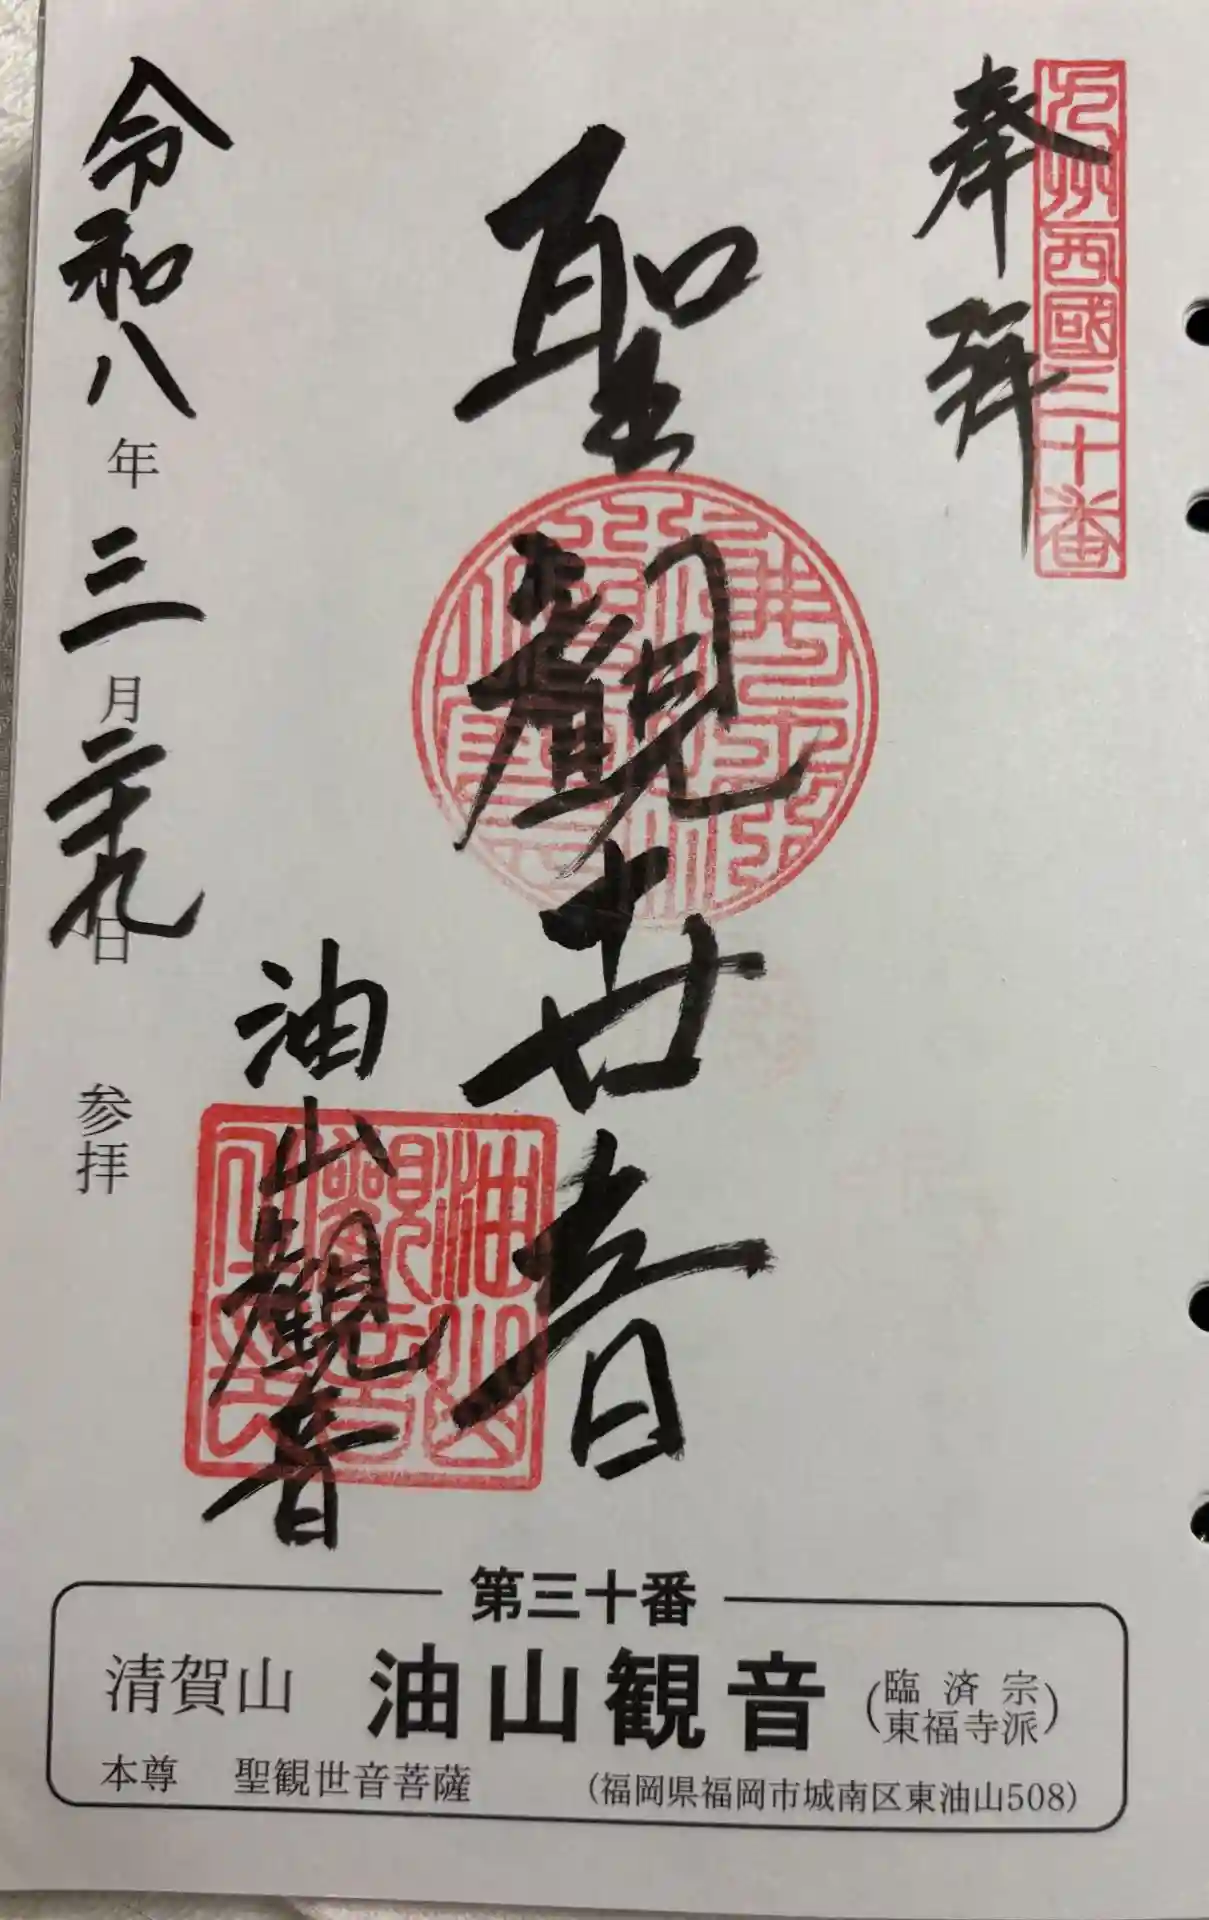 九州西國三十番
奉拜
聖觀世音
油山觀音
令和八年三月二十九日参拝
第三十番
清賀山 油山観音 (臨済宗東福寺派)
本尊 聖観世音菩薩 (福岡県福岡市城南区東油山508)